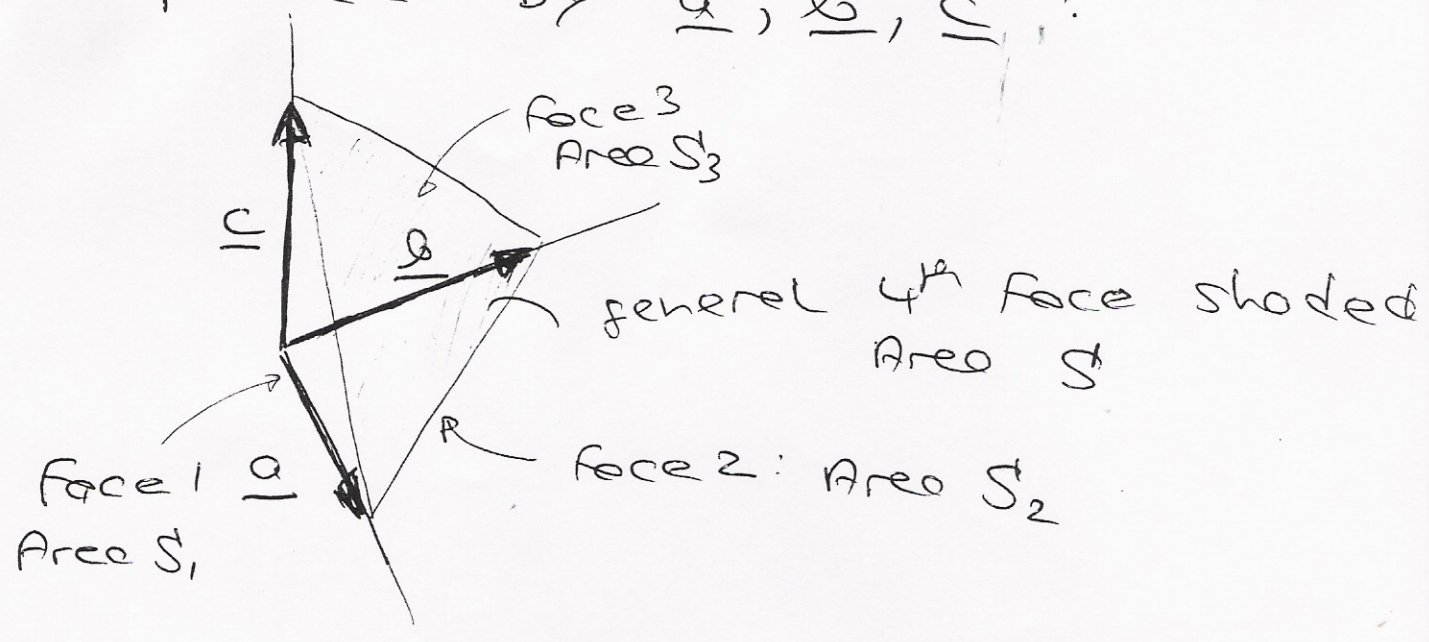 a, b, c.
Face 3
Area S3
c
b
general 4th Face shaded
Area S
Face 1 a
Area S1
Face 2: Area S2